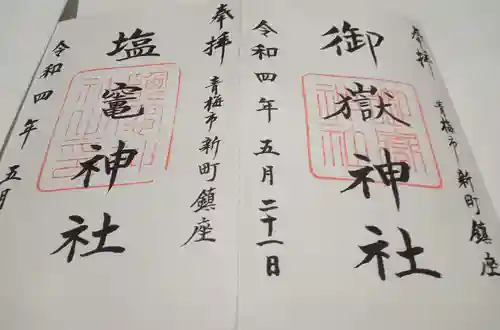 奉拝
青梅市新町鎮座
御嶽神社
令和四年五月二十一日
奉拝
青梅市新町鎮座
塩竈神社
令和四年五月